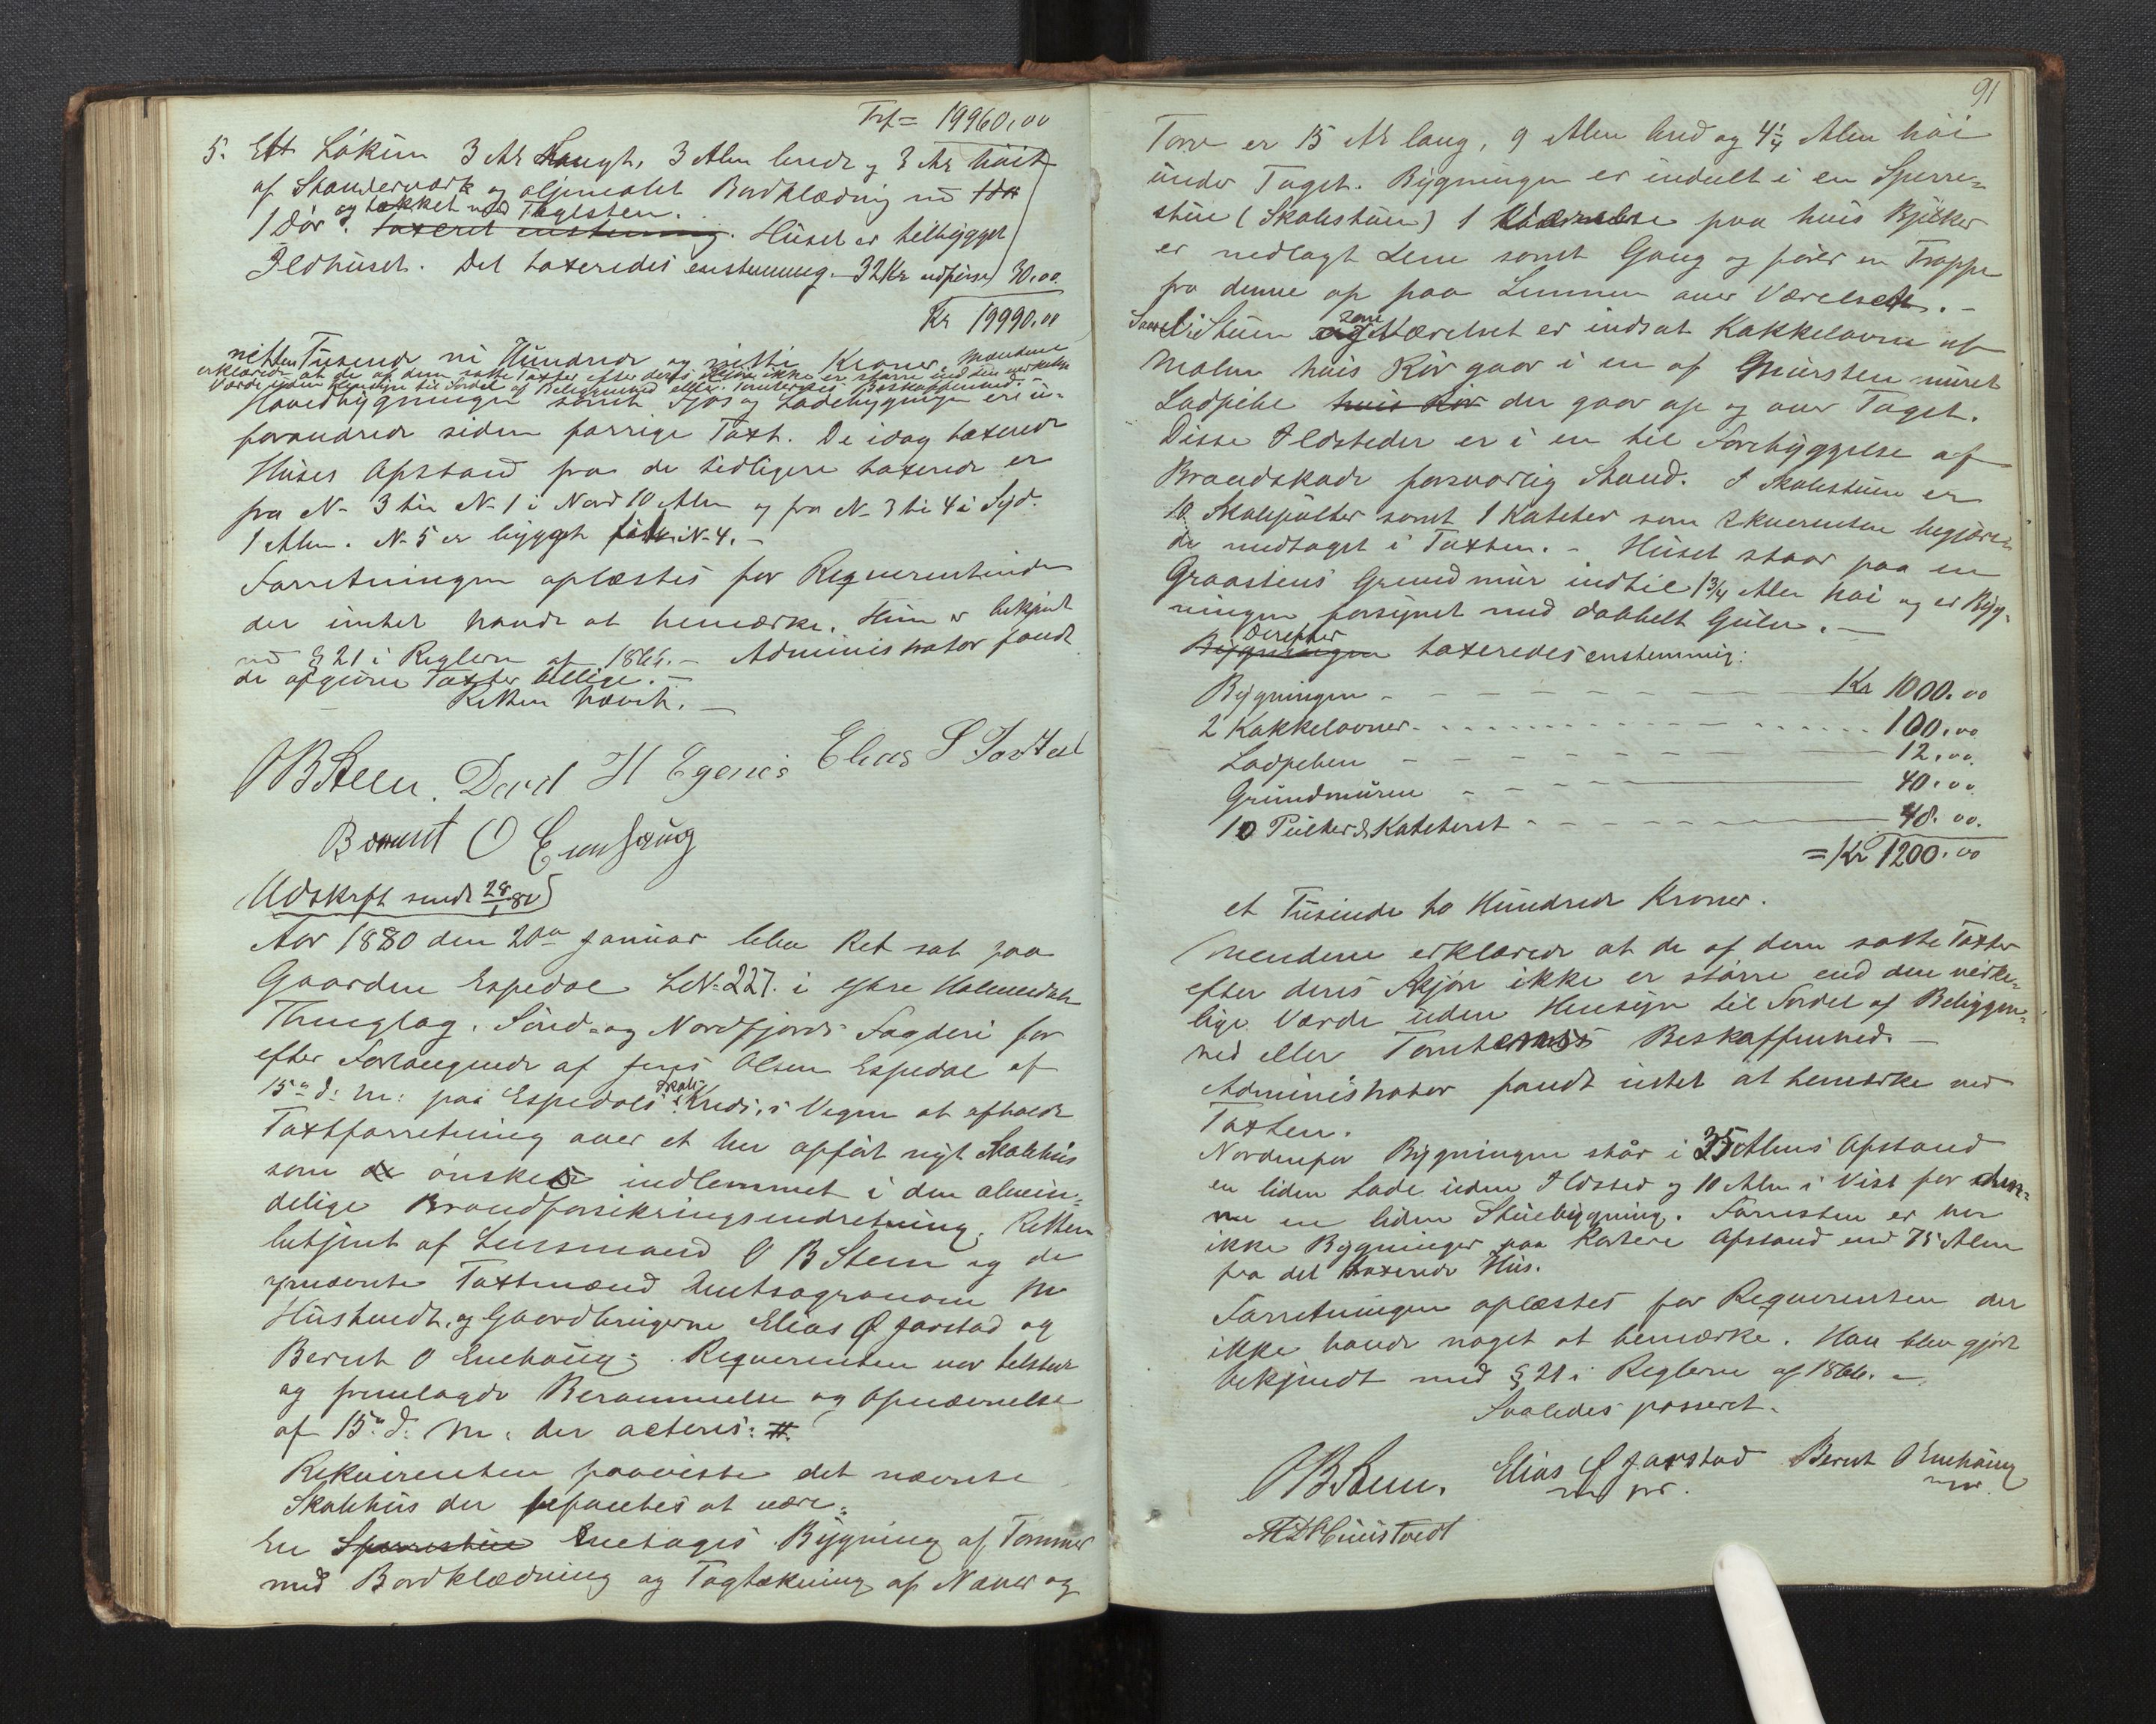 Trf = 19960,00
5. Ett Løkum 3 Al. Langt, 3 Alen bredt og 3 Al. høit
af Standerværk og oljemalet Bordklædning med
1 Dør og tækket med Taglsten. taxeret enstemmig. Huset er tilbygget
Ildhuset. Det taxeredes enstemmig. 32 Kr udføres 30.00
Kr 19990.00
nitten Tusende ni Hundrede og nitti Kroner. Mændene
erklærede at de af dem satte Taxter efter deres Skjøn ikke er større end den verkelige
Værdi uden Hensyn til Fordel af Beliggenhed eller Tomternes Beskaffenhed.
Hovedbygningen samt Fjøs og Ladebygningen ere u-
forandrede siden forrige Taxt. De idag taxerede
Huses Afstand fra de tidligere taxerede er
fra No 3 til No 1 i Nord 10 Alen og fra No 3 til 4 i Syd.
1 Alen. No 5 er bygget No 4. -
Forretningen oplæstes for Requirentinden
der intet havde at bemærke. Hun er bekjendt
med § 21 i Reglerne af 1866. - Administrator fandt
de afgivne Taxter billige. -
Retten hævet. -
O B Steen. David H Egenes Elias S Jarstad
Bernt O Enehaug
Udskrft sendt 28/1 80
Aar 1880 den 20de Januar blev Ret sat paa
Gaarden Espedal LNo 227. i ytre Holmedals
Thinglag, Sønd- og Nordfjords Fogderi for
efter Forlangende af Jens Olsen Espedal af
15de d. M. paa Espedals Skole Kreds's Vegne at afholde
Taxtforretning over et her opført nyt Skolehus
som ønskes indlemmet i den almin-
delige Brandforsikringsindretning. Retten
betjent af Lensmand O B Steen og de
opnævnte Taxtmænd Amtsagronom M
Hustvedt, og Gaardbrugerne Elias Ø Jarstad og
Bernt O Enehaug. Requirenten var tilstede
og fremlagde Berammelse og Opnævnelse
af 15de d. M. der acteres: #.
Rekvirenten paaviste det nævnte
Skolehus der befantes at være:
En Sperrestue Enetages Bygning af Tømmer
med Bordklædning og Tagtækning af Næver og
91
Torv er 15 Al lang, 9 Alen bred og 4 1/4 Alen høi
under Taget. Bygningen er inddelt i en Sperre-
stue (Skolestuen) 1 Værelse paa hvis Bjelker
er nedlagt Lem samt Gang og fører en Trappe
fra denne op paa Lemmen over Værelset. -
Saavel i Stuen som Værelset er indsat Kakkelovne af
Malm hvis Rør gaar i en af Mursten muret
Ladpibe hvis Rør der gaar op og over Taget.
Disse Ildsteder er i en til Forebyggelse af
Brandskade forsvarlig Stand. I Skolestuen er
10 Skolepulter samt 1 Kateter som Rkvirenten begjære-
de medtaget i Taxten. - Huset staar paa en
Graastens Grundmur indtil 1 3/4 Alen høi og er Byg-
ningen forsynet med dobbelt Gulv. -
Bygningen Derefter taxeredes enstemmig:
Bygningen - Kr 1000.00
2 Kakkelovner - 100.00
Ladpiben - 12.00
Grundmuren - 40.00
10 Pulter & Kateteret - 48.00.
= Kr 1200.00
et Tusinde to Hundrede Kroner.
Mændene erklærede at de af dem satte Taxter
efter deres Skjøn ikke er større end den virke-
lige Værdi uden Hensyn til Fordel af Beliggen-
hed eller Tomternes Beskaffenhed. -
Administrator fandt intet at bemærke ved
Taxten.
Nordenfor Bygningen står i 35 Alens Afstand
en liden Lade uden Ildsted og 10 Alen i Vest for den-
ne en liden Stuebygning. Forresten er her
ikke Bygninger paa kortere Afstand end 75 Alen
fra det taxerede Hus.
Forretningen oplæstes for Requirenten der
ikke havde noget at bemærke. Han blev gjort
bekjendt med § 21 i Reglerne af 1866. -
Saaledes passeret.
O B Steen. Elias Ø Jarstad Bernt O Enehaug
M D Huustvedt